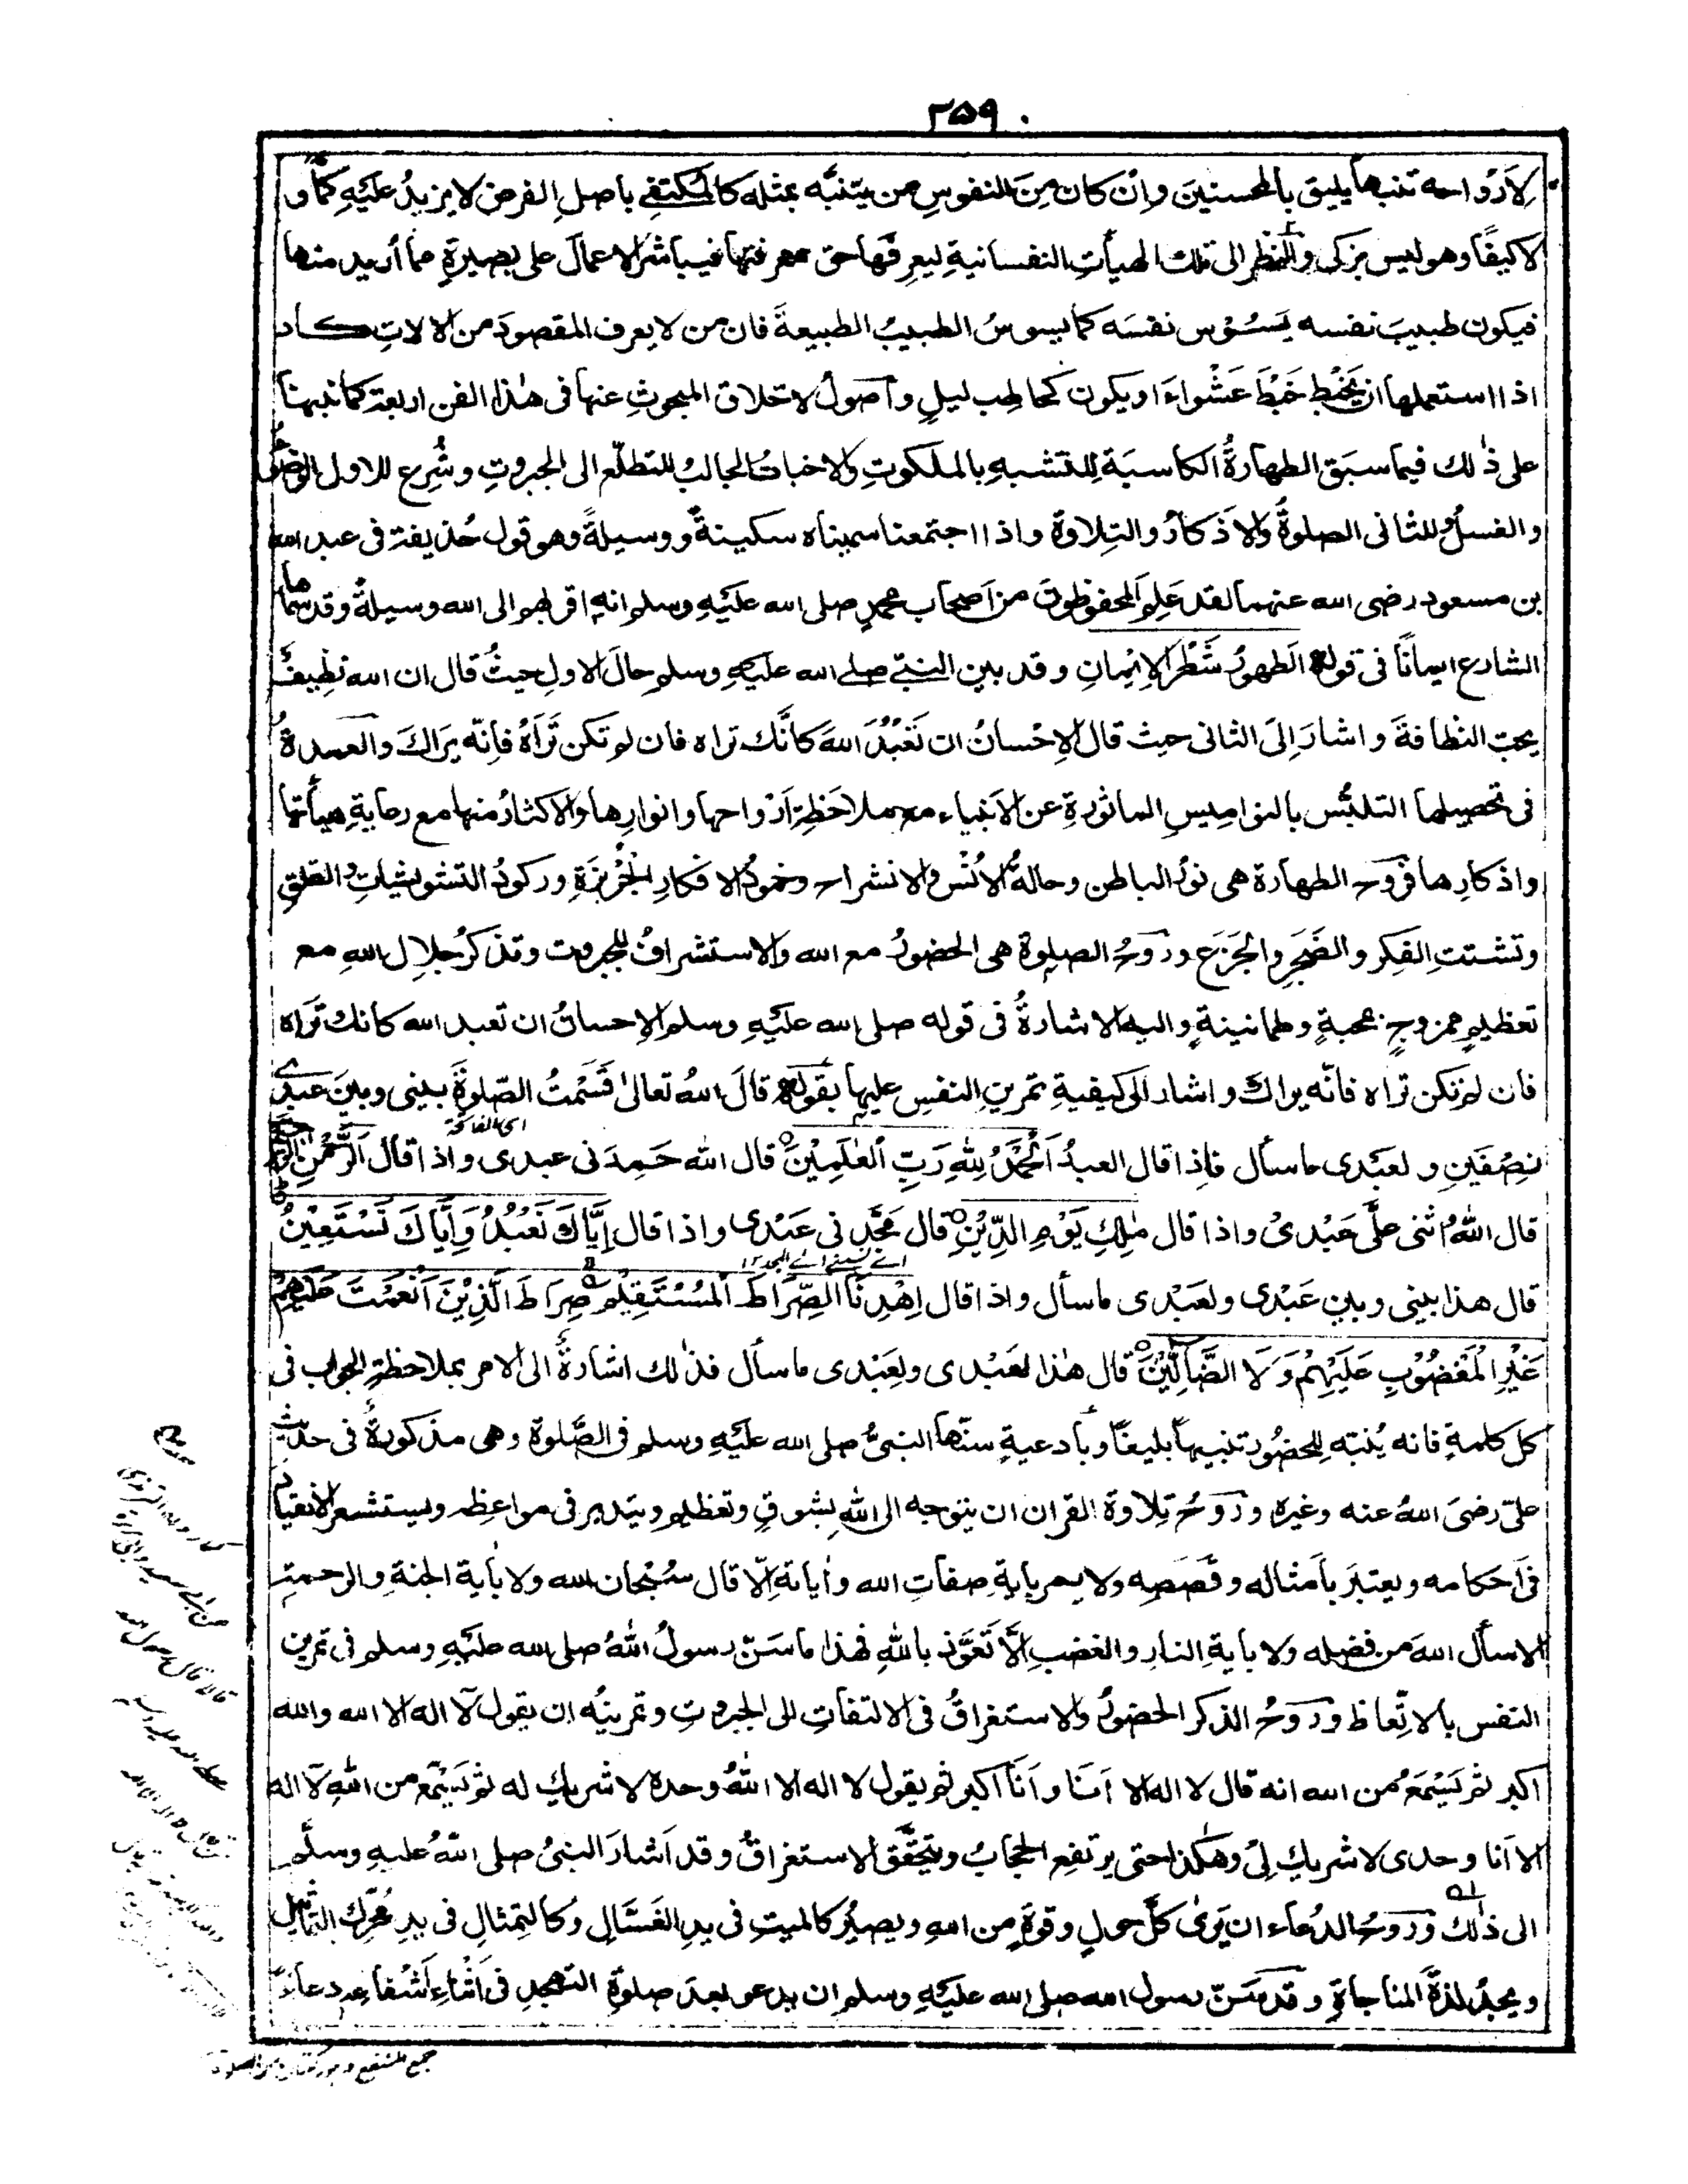 ۳۵۹
لِاَرْواحه تنبها يليق بالمحسنين وان كان مِنَ النفوسِ من يتنبَّه بمثله كالمكتفي باصلِ الفرض لا يزيدُ عليهِ كمًّا و
لا كيفًا وهو ليس بزكى والنظر الى تلك الهيأتِ النفسانيةِ ليعرِفَها حق معرفتها فيباشر الاعمالَ على بصيرةٍ مما أريد منها
فيكون طبيبَ نفسه يَسُوْس نفسَه كما يسوسُ الطبيبُ الطبيعةَ فان من لا يعرف المقصودَ من الالاتِ كاد
اذا استعملها ان يَخبِط خَبْطَ عَشْواءَ او يكون كحاطِب ليلٍ وأصولُ الاخلاق المبحوثِ عنها فى هٰذا الفن اربعة كما نبهنا
على ذٰلك فيما سبَق الطهارةُ الكاسبَة لِلتشبهِ بالملكوتِ والاخباتُ الجالبُ للتطلّع الى الجبروتِ وشُرِع للاول الوضوءُ
والغسلُ وللثانى الصلوةُ والاَذكارُ والتلاوة واذا اجتمعتا سميناه سكينةً ووسيلةً وهو قول حُذيفة فى عبد الله
بن مسعود رضى الله عنهما لقد عَلِم المحفوظون من اَصحاب محمدٍ صلى الله عليهِ وسلم انه اقربهم الى الله وسيلةً وقد سماها
الشارع ايمانًا فى قوله الَطهورُ شَطْرُ الاِيْمانِ وقد بين النبيّ صلے الله عليهِ وسلم حالَ الاولِ حيثُ قال ان الله نظيفٌ
يحبّ النظافةَ واشارَ اِلىَ الثانى حيث قال الاِحْسانُ ان تَعْبُدَ اللهَ كانَّك تراه فان لم تكن تَرَاهُ فاِنّه يَرَاكَ والعمدةُ
فى تحصيلها التلبُّس بالنواميسِ الماثورةِ عن الاَنبياء مع ملاحَظةِ اَرْواحها وانوارِها والاكثارُ منها مع رعايةِ هيأتها
واذكارِها فرَوحُ الطهارة هى نورُ الباطن وحالةُ الاُنْس والانشراح وخمودُ الافكارِ الجُرْبُزَةِ وركودُ التشويشاتِ والقلقِ
وتشتتِ الفِكر والضَجَرِ والجَزَع ورَوحُ الصلوة هى الحضورُ مع الله والاستشرافُ للجبروت وتذكرُ جلالِ اللهِ مع
تعظيمٍ ممزوجٍ بمحبةٍ وطمانينةٍ واليه الاشارةُ فى قوله صلى الله عليهِ وسلم الاِحسانُ ان تعبد الله كانك تَراه
فان لم تكن تراه فانّه يراك واشار الى كيفيةِ تمرينِ النفسِ عليها بقوله قالَ اللهُ تعالىٰ قَسَمْتُ الصّلوةَ بينى وبين عبدى
اى الفاتحة
نِصْفَينِ ولعبْدى ما سأل فاِذا قال العبدُ اَلْحَمْدُ لِلّٰهِ رَبِّ الْعٰلَمِيْنَ قال اللّٰه حَمِدَنى عبدى واذا قال الرَّحْمٰنِ الرَّحِيْمِ
قال اللّٰهُ اثنى علَىَّ عَبْدىْ واذا قال مٰلِكِ يَوْمِ الدِّيْنِ قال مجَّدنى عَبْدى واذا قال اِيَّاكَ نَعْبُدُ وَاِيَّاكَ نَسْتَعِيْنُ
قال هذا بينى وبين عَبْدى ولعَبْدى ما سأل واذا قال اِهْدِنَا الصِّرَاطَ الْمُسْتَقِيْمَ صِرَاطَ الَّذِيْنَ اَنْعَمْتَ عَلَيْهِمْ
غَيْرِ الْمَغْضُوْبِ عَلَيْهِمْ وَلَا الضَّآلِّيْنَ قال هٰذا لعَبْدى ولِعَبْدى ما سأل فذٰلك اشارةٌ الى الامر بملاحظةِ الجواب فى
كل كلمةٍ فانه يُنبّه لِلحضُورِ تنبيهاً بليغًا وبأدعيةٍ سنّها النبىُّ صلى الله عليهِ وسلم فى الصَّلوة وهى مذكورةٌ فى حديثِ
علىّ رضىَ اللهُ عنه وغيره ورَوحُ تِلاوة القران ان يتوجه الى اللهِ بشوقٍ وتعظيمٍ ويتدبر فى مواعظه ويستشعرَ الانقيادَ
فى اَحكامه ويعتبرَ باَمثاله وقَصَصِه ولا يمر باٰيةِ صفاتِ الله واٰياته اِلّا قال سُبْحان الله ولا باٰية الجنة والرحمةِ
الا سأل اللهَ من فضله ولا باٰيةِ النارِ والغضبِ اِلَّا تَعَوَّذ باللّٰهِ فهٰذا ما سَنّ رسولُ اللّٰهُ صلى الله عليهِ وسلم فى تمرين
النفس بالاتِّعاظ ورَوحُ الذكر الحضورُ والاستغراقُ فى الالتفاتِ الى الجبروتِ وتمرينُه ان يقول لآ اله الا الله والله
اكبر ثم يَسْمَعُ من الله انه قال لا اله الا اَنَا واَنَا اكبر ثم يقول لا اله الا اللّٰهُ وحده لا شريك له ثم يَسْمَع من اللّٰهِ لآ اله
الا اَنا وحدى لا شريك لِىْ وهٰكذا حتى يرتفعِ الحجابُ ويتحقَّق الاستغراقُ وقد اَشارَ النبىُ صلى اللّٰهُ عليهِ وسلَّم
الى ذٰلك ورَوحُ الدُعاء ان يَرىٰ كلَّ حولٍ وقوةٍ من اللهِ ويصيرُ كالميتِ فى يدِ الغَسَّالِ وكالتِمثالِ فى يدِ مُحرِّكِ التماثيل
ويجدُ لذةَ المناجاةِ وقد سَنّ رسول الله صلى الله عليهِ وسلم ان يدعو بعدَ صلوةِ التهجدِ فى اَثناءِ اَشْفاعِه دعاءً